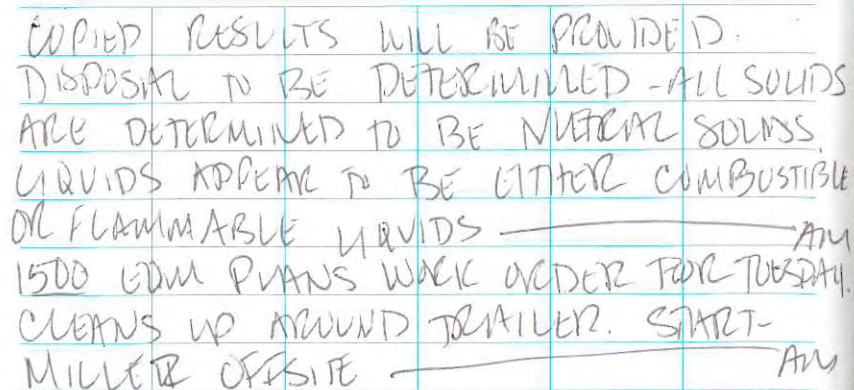 COPIED RESULTS WILL BE PROVIDED.
DISPOSAL TO BE DETERMINED - ALL SOLIDS
ARE DETERMINED TO BE NUETRAL SOLIDS.
LIQUIDS APPEAR TO BE EITHER COMBUSTIBLE
OR FLAMMABLE LIQUIDS — AM
1500 EQM PLANS WORK ORDER FOR TUESDAY.
CLEANS UP AROUND TRAILER. START-
MILLER OFFSITE — AM